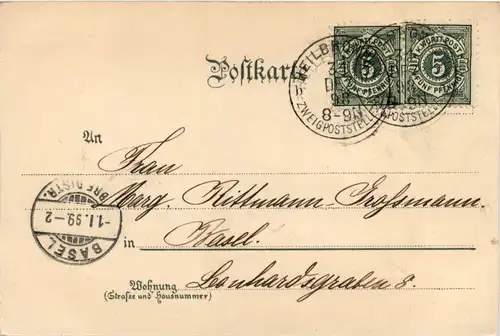 K. WÜRTT. POST
5
FÜNF PFENNIG
K. WÜRTT. POST
5
FÜNF PFENNIG
HEILBRONN
31
DEZ
98
8-9N
ZWEIGPOSTSTELLE
Postkarte
An
Frau
Marg. Rittmann-Großmann.
in Basel.
Wohnung Leonhardsgraben 8.
(Straße und Hausnummer)
BRF. DISTR.
-1.I.99-2
BASEL